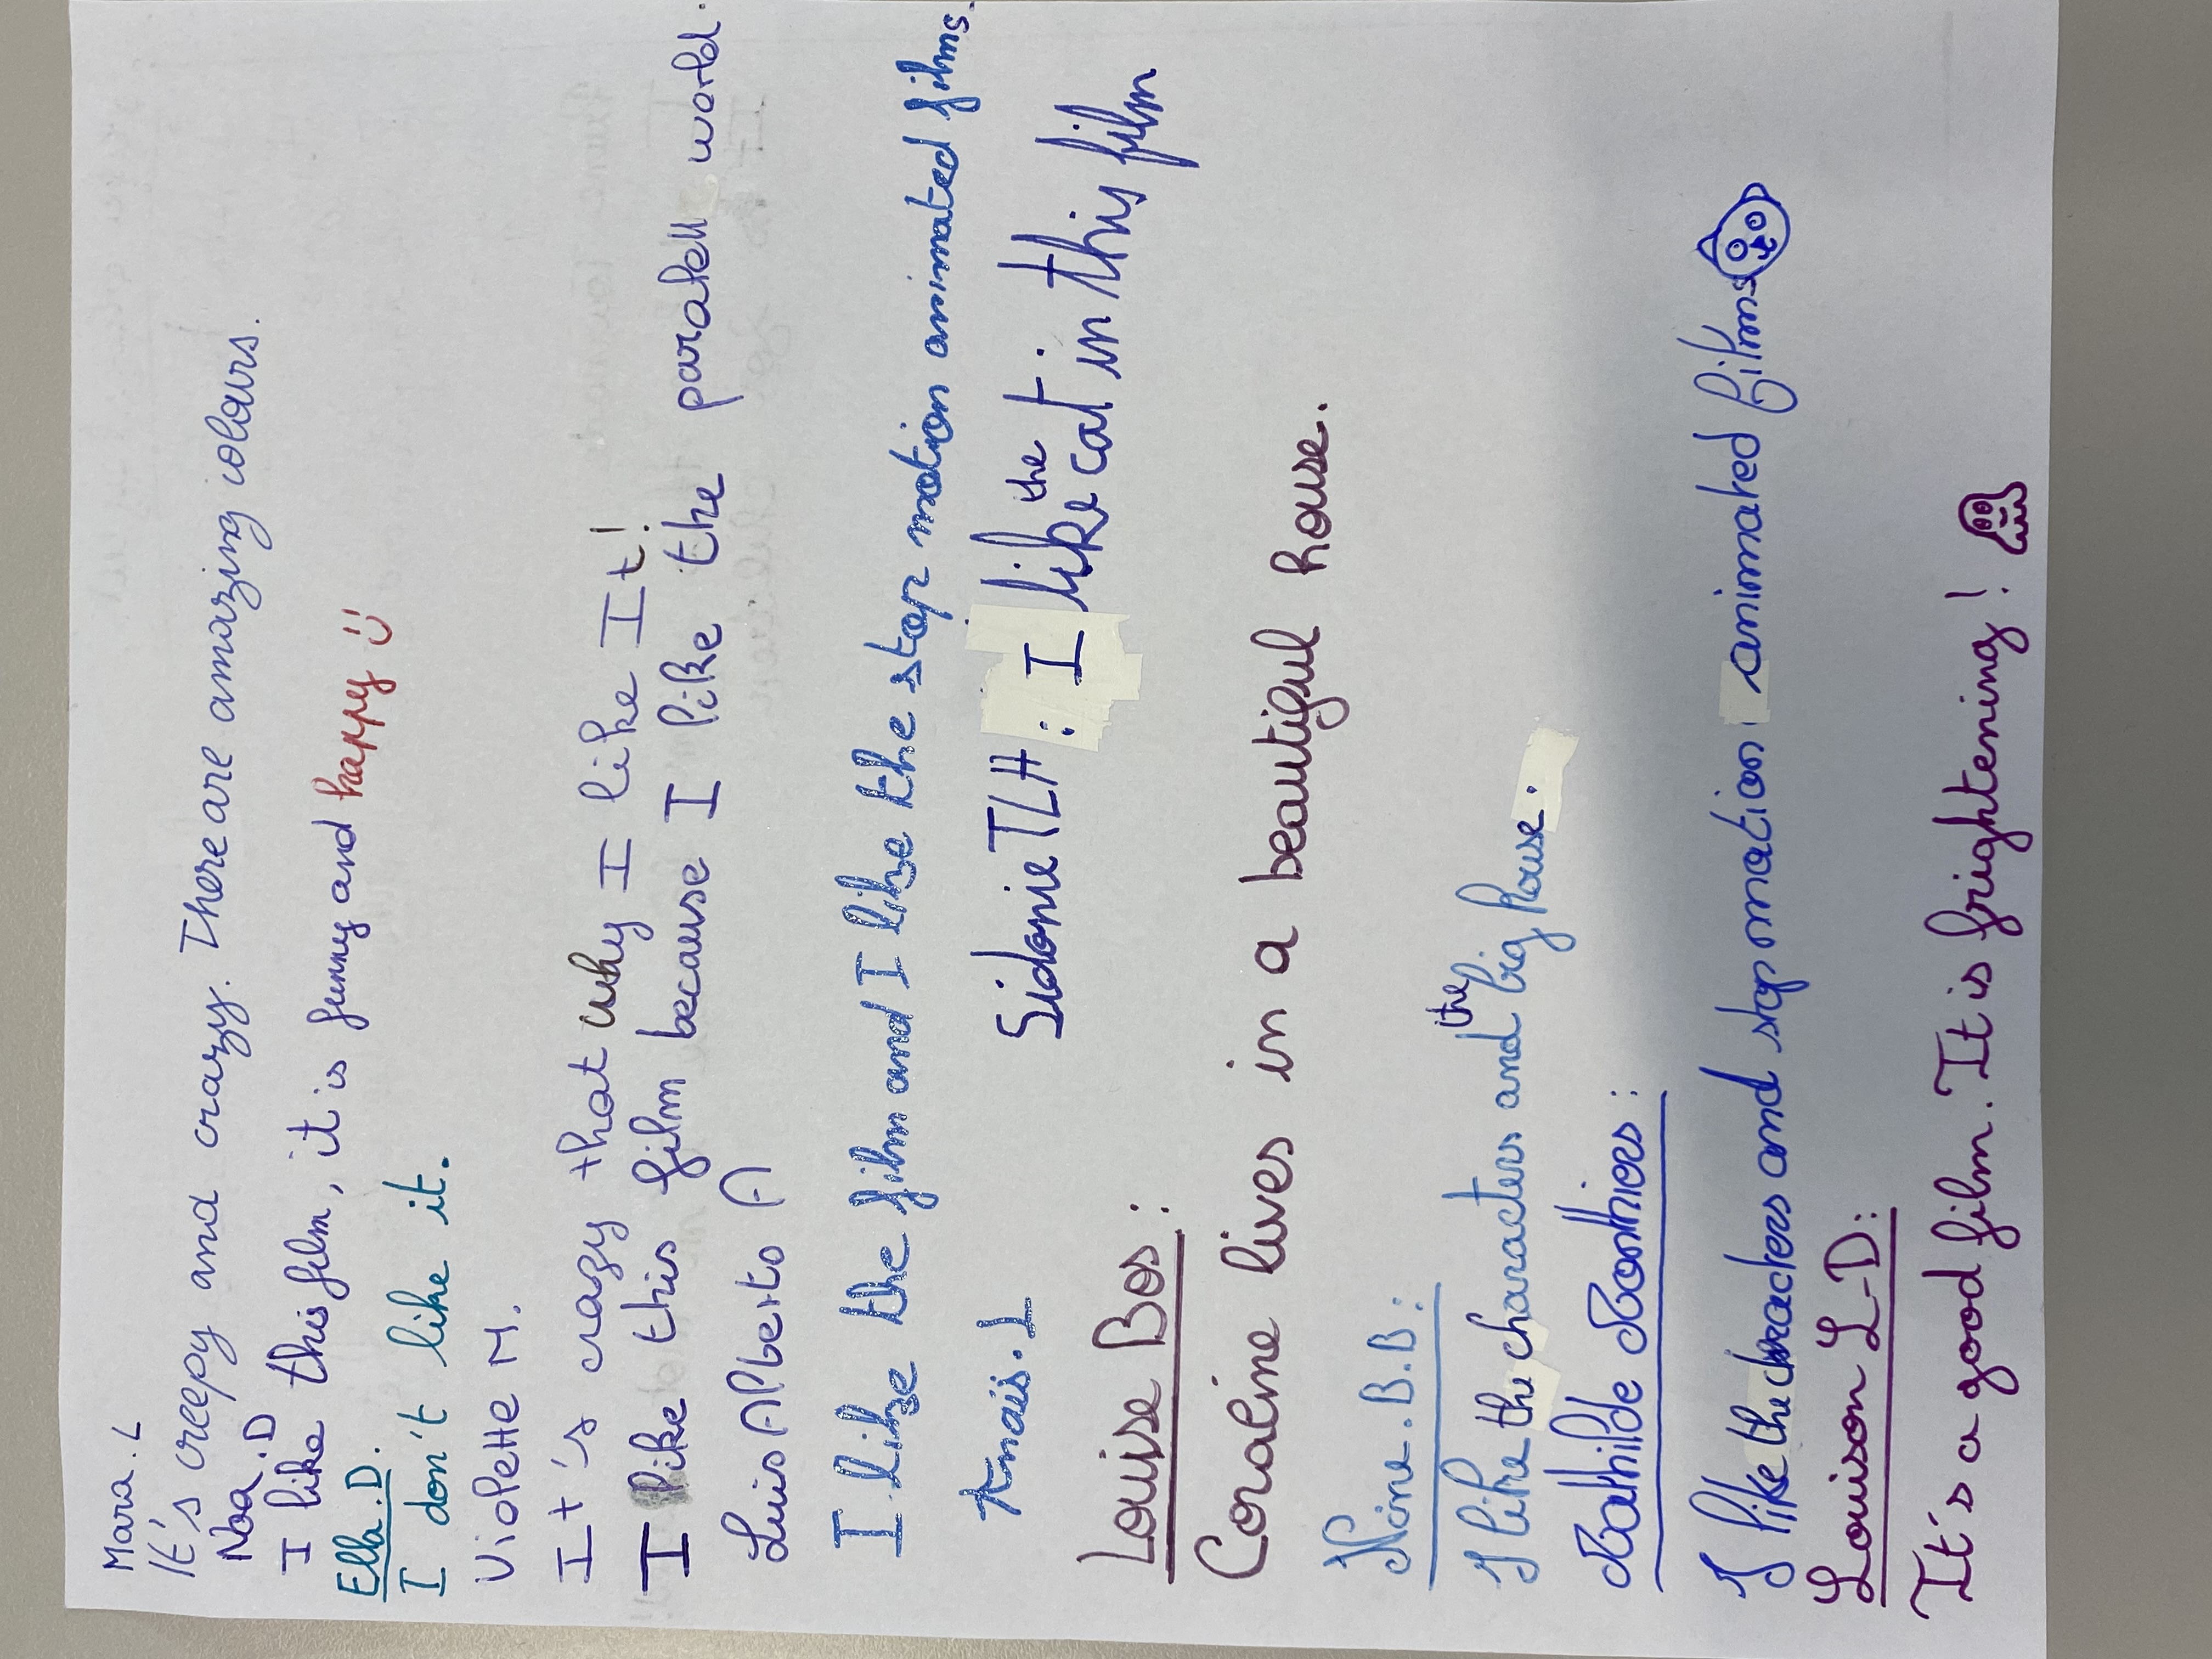 Mara.L
It's creepy and crazy. There are amazing colours.
Noa.D
I like this film, it is funny and happy
Ella.D.
I don't like it.
Violette M.
It's crazy that why I like It!
I like this film because I like the parallell world.
Luis Alberto A
I like the film and I like the stop motion animated films.
Anaïs.L
Sidonie TLH : I like the cat in this film
Louise Bos :
Coraline lives in a beautiful house.
Nine.B.B :
I like the characters and the big house.
Bathilde
I like the characters and stop motion animated films
Louison L-D :
It's a good film. It is frightening !